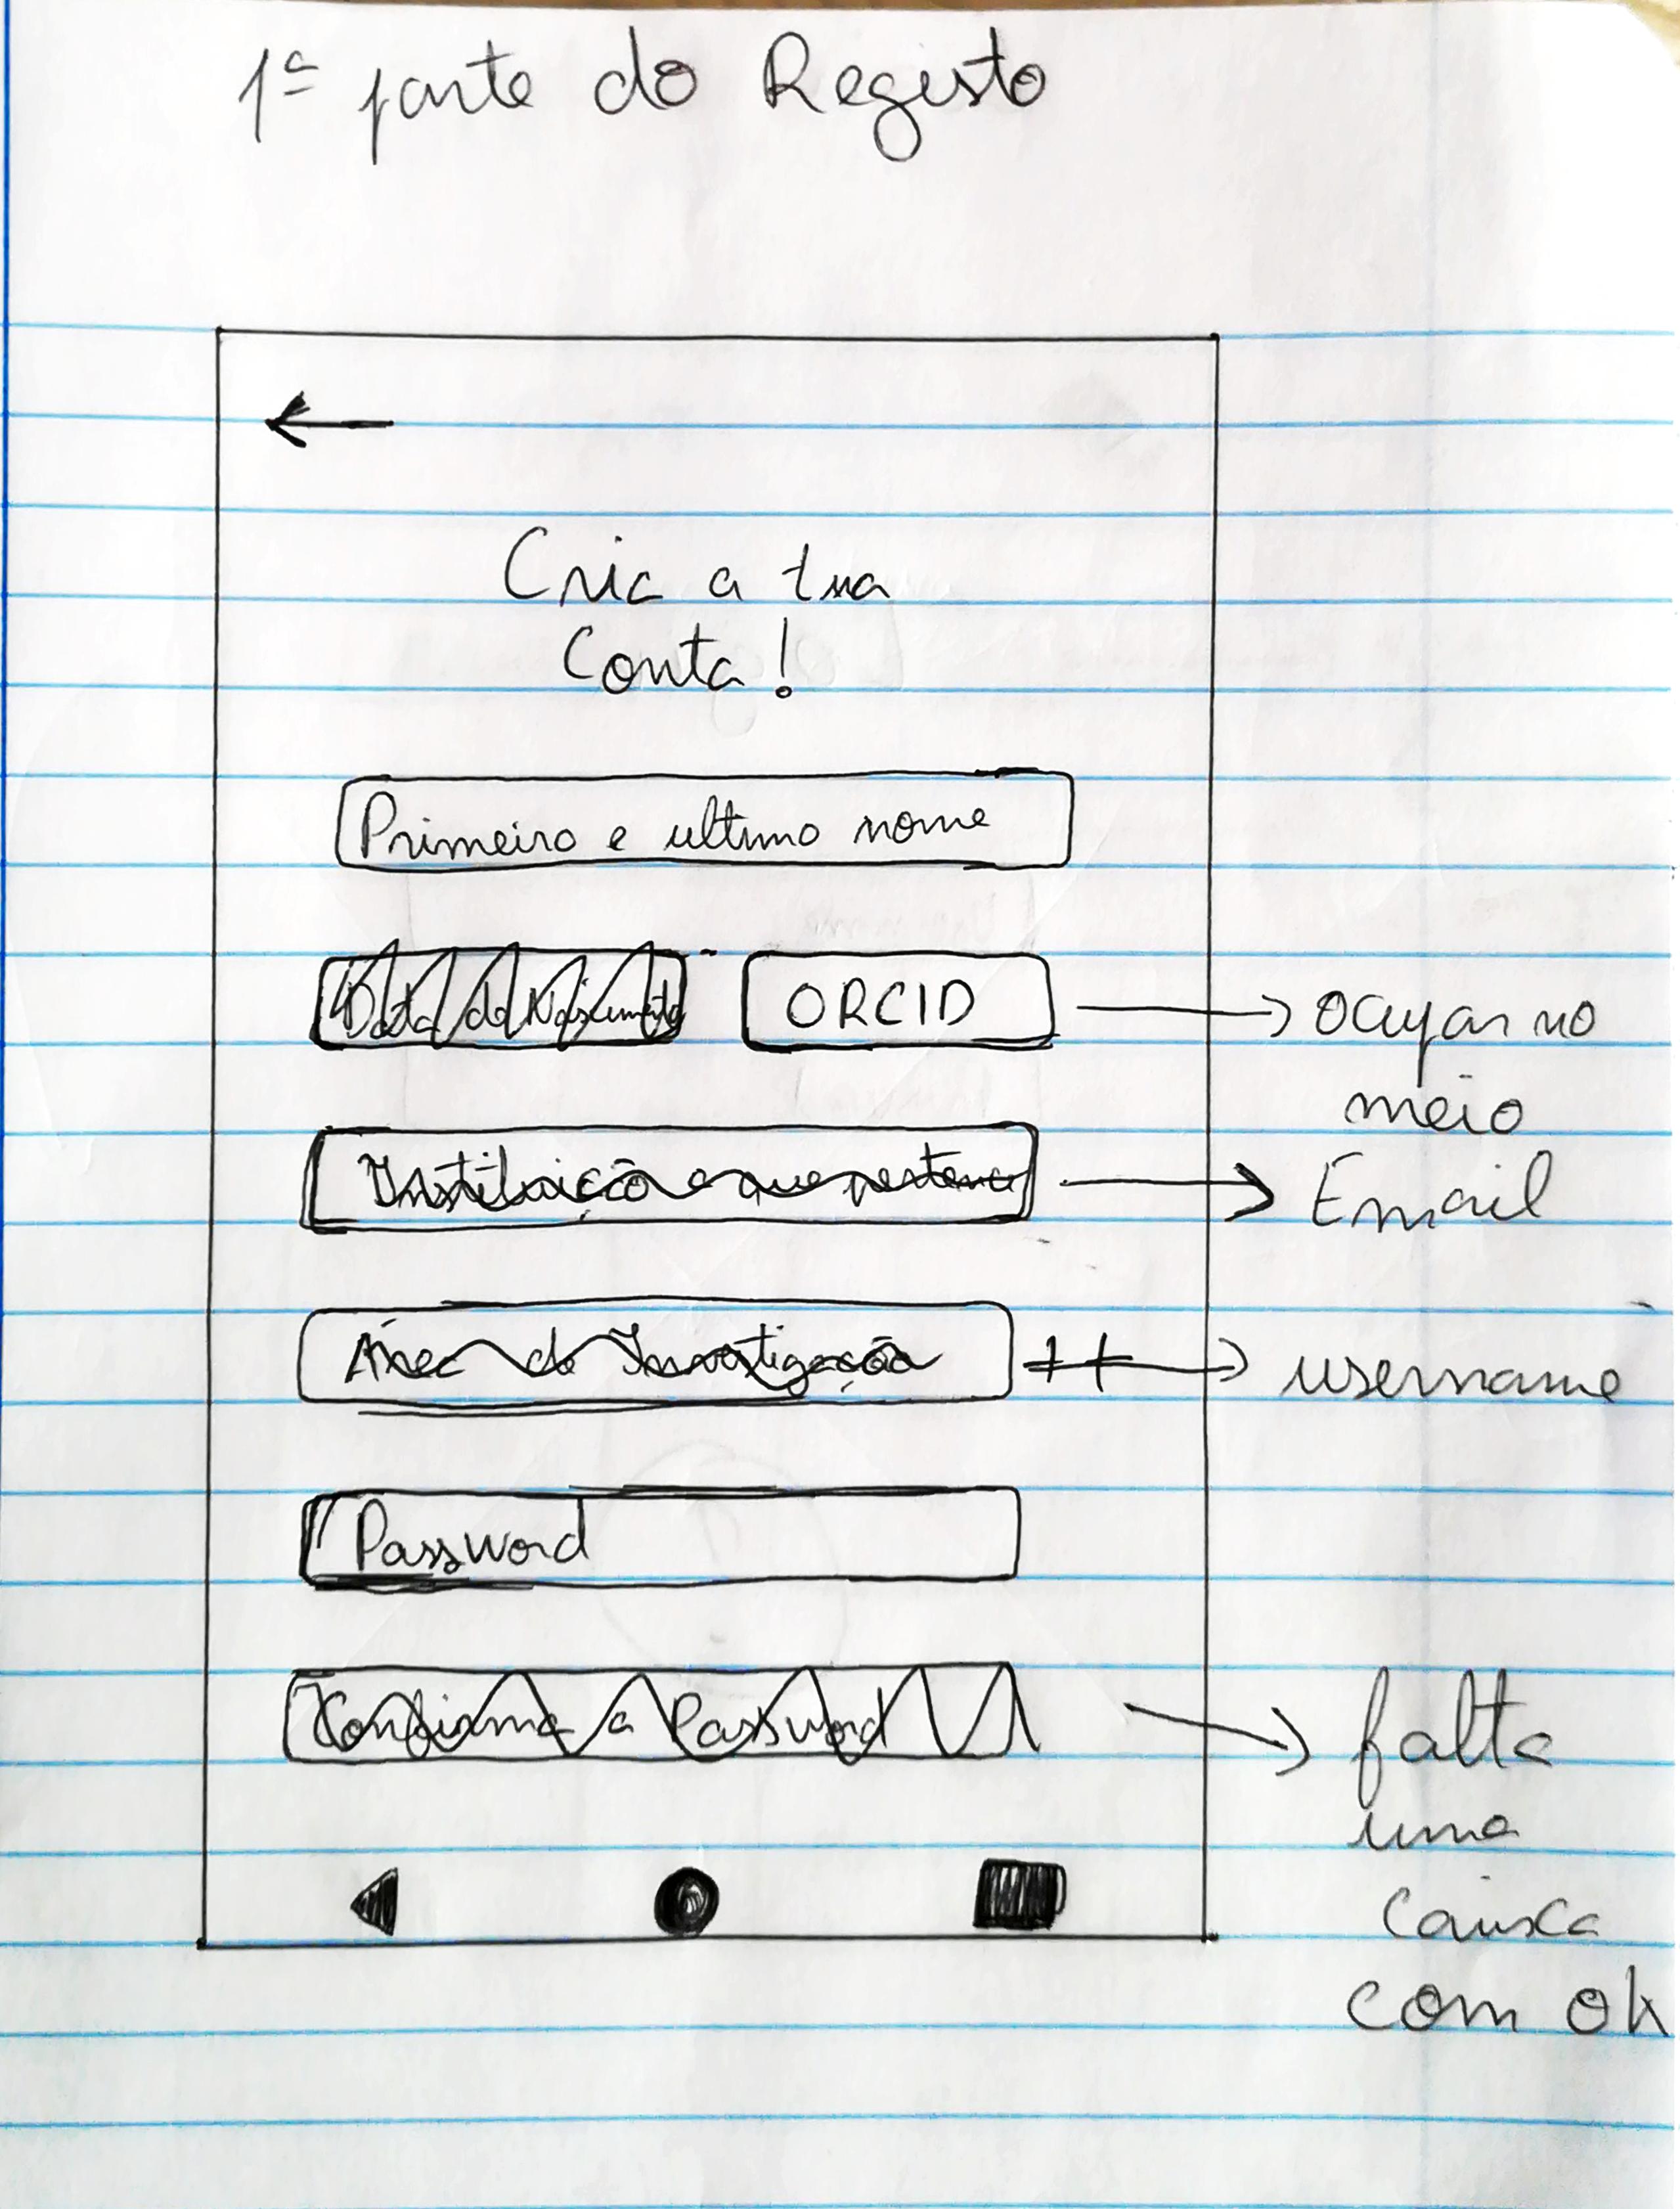 1ª parte do Registo
Cria a tua
Conta!
Primeiro e ultimo nome
Data de Nascimento
ORCID
ocupar no
meio
Instituição a que pertence
Email
Área de Investigação
username
Password
Confirma a Password
falta
uma
caixa
com ok